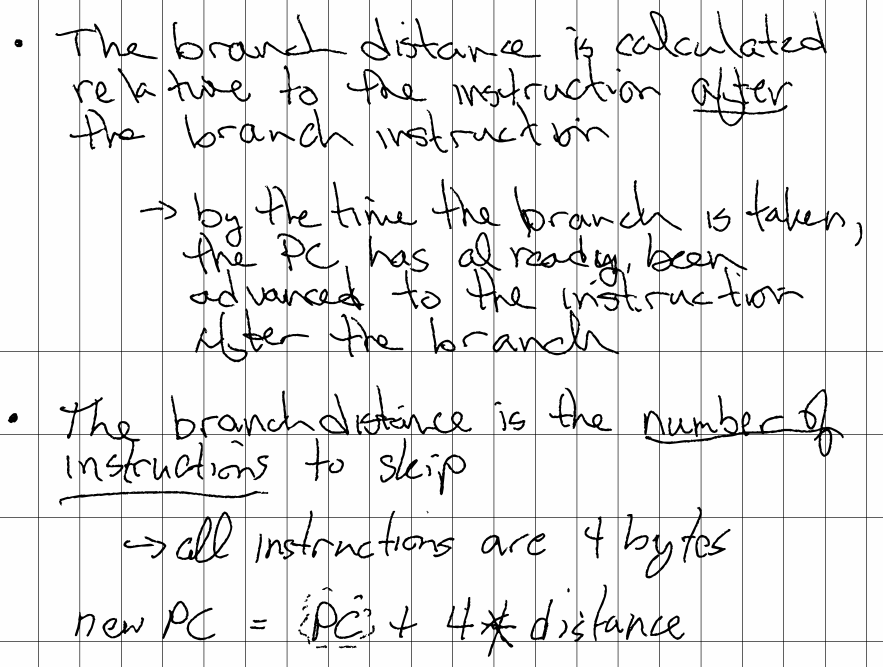 • The branch distance is calculated
relative to the instruction after
the branch instruction
→ by the time the branch is taken,
the PC has already been
advanced to the instruction
after the branch
• The branch distance is the number of
instructions to skip
→ all instructions are 4 bytes
new PC = PC + 4 * distance